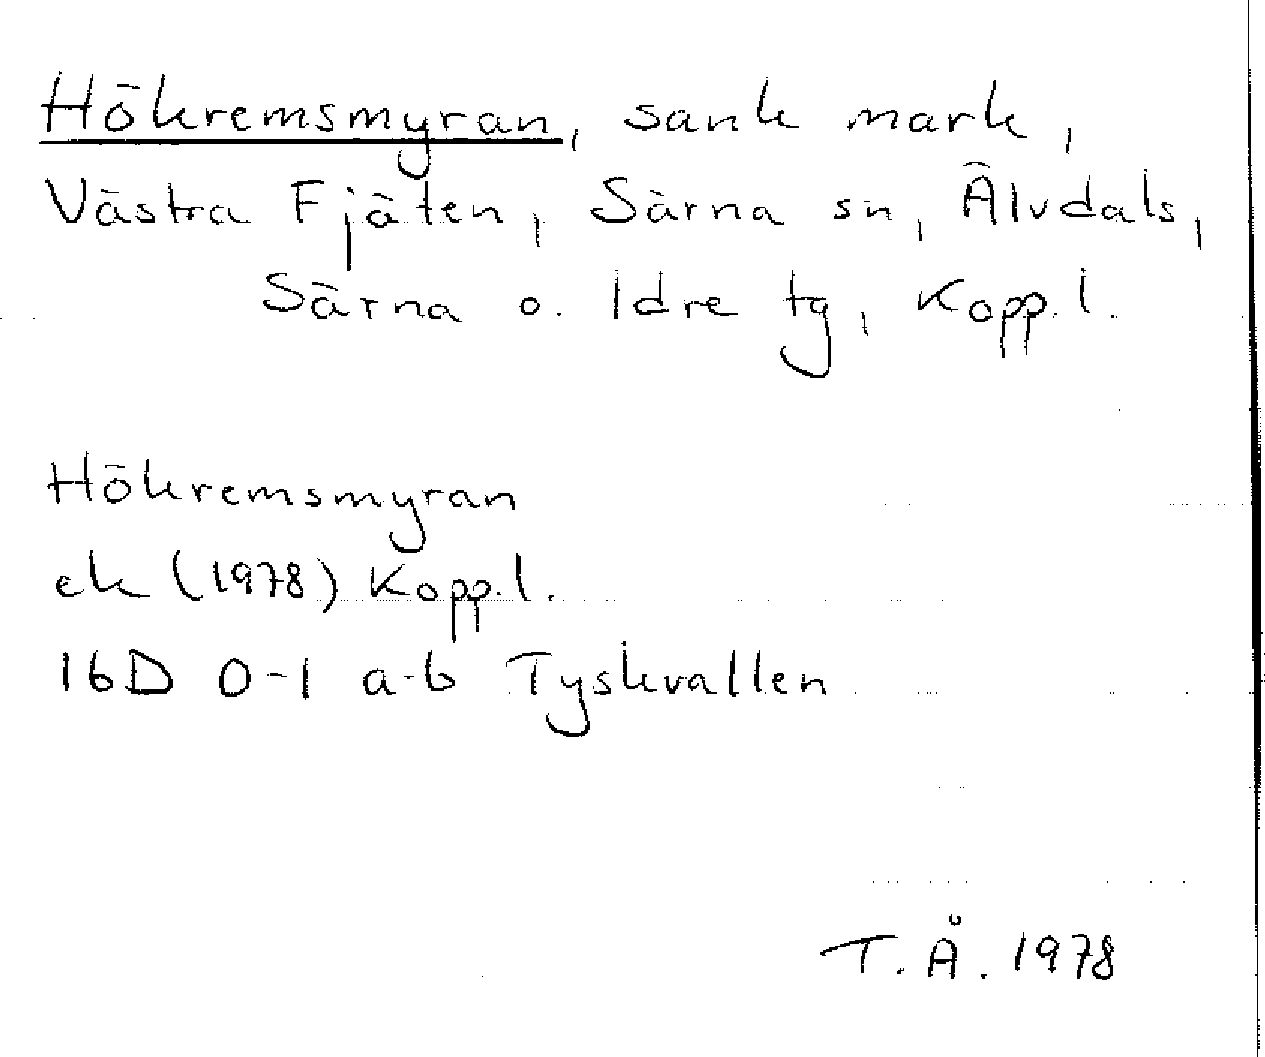 Hökremsmyran, sank mark,
Västra Fjäten, Särna sn, Älvdals,
Särna o. Idre tg, Kopp.l.
Hökremsmyran
ek (1978) Kopp.l.
16D 0-1 a-b Tyskvallen
T.Å. 1978